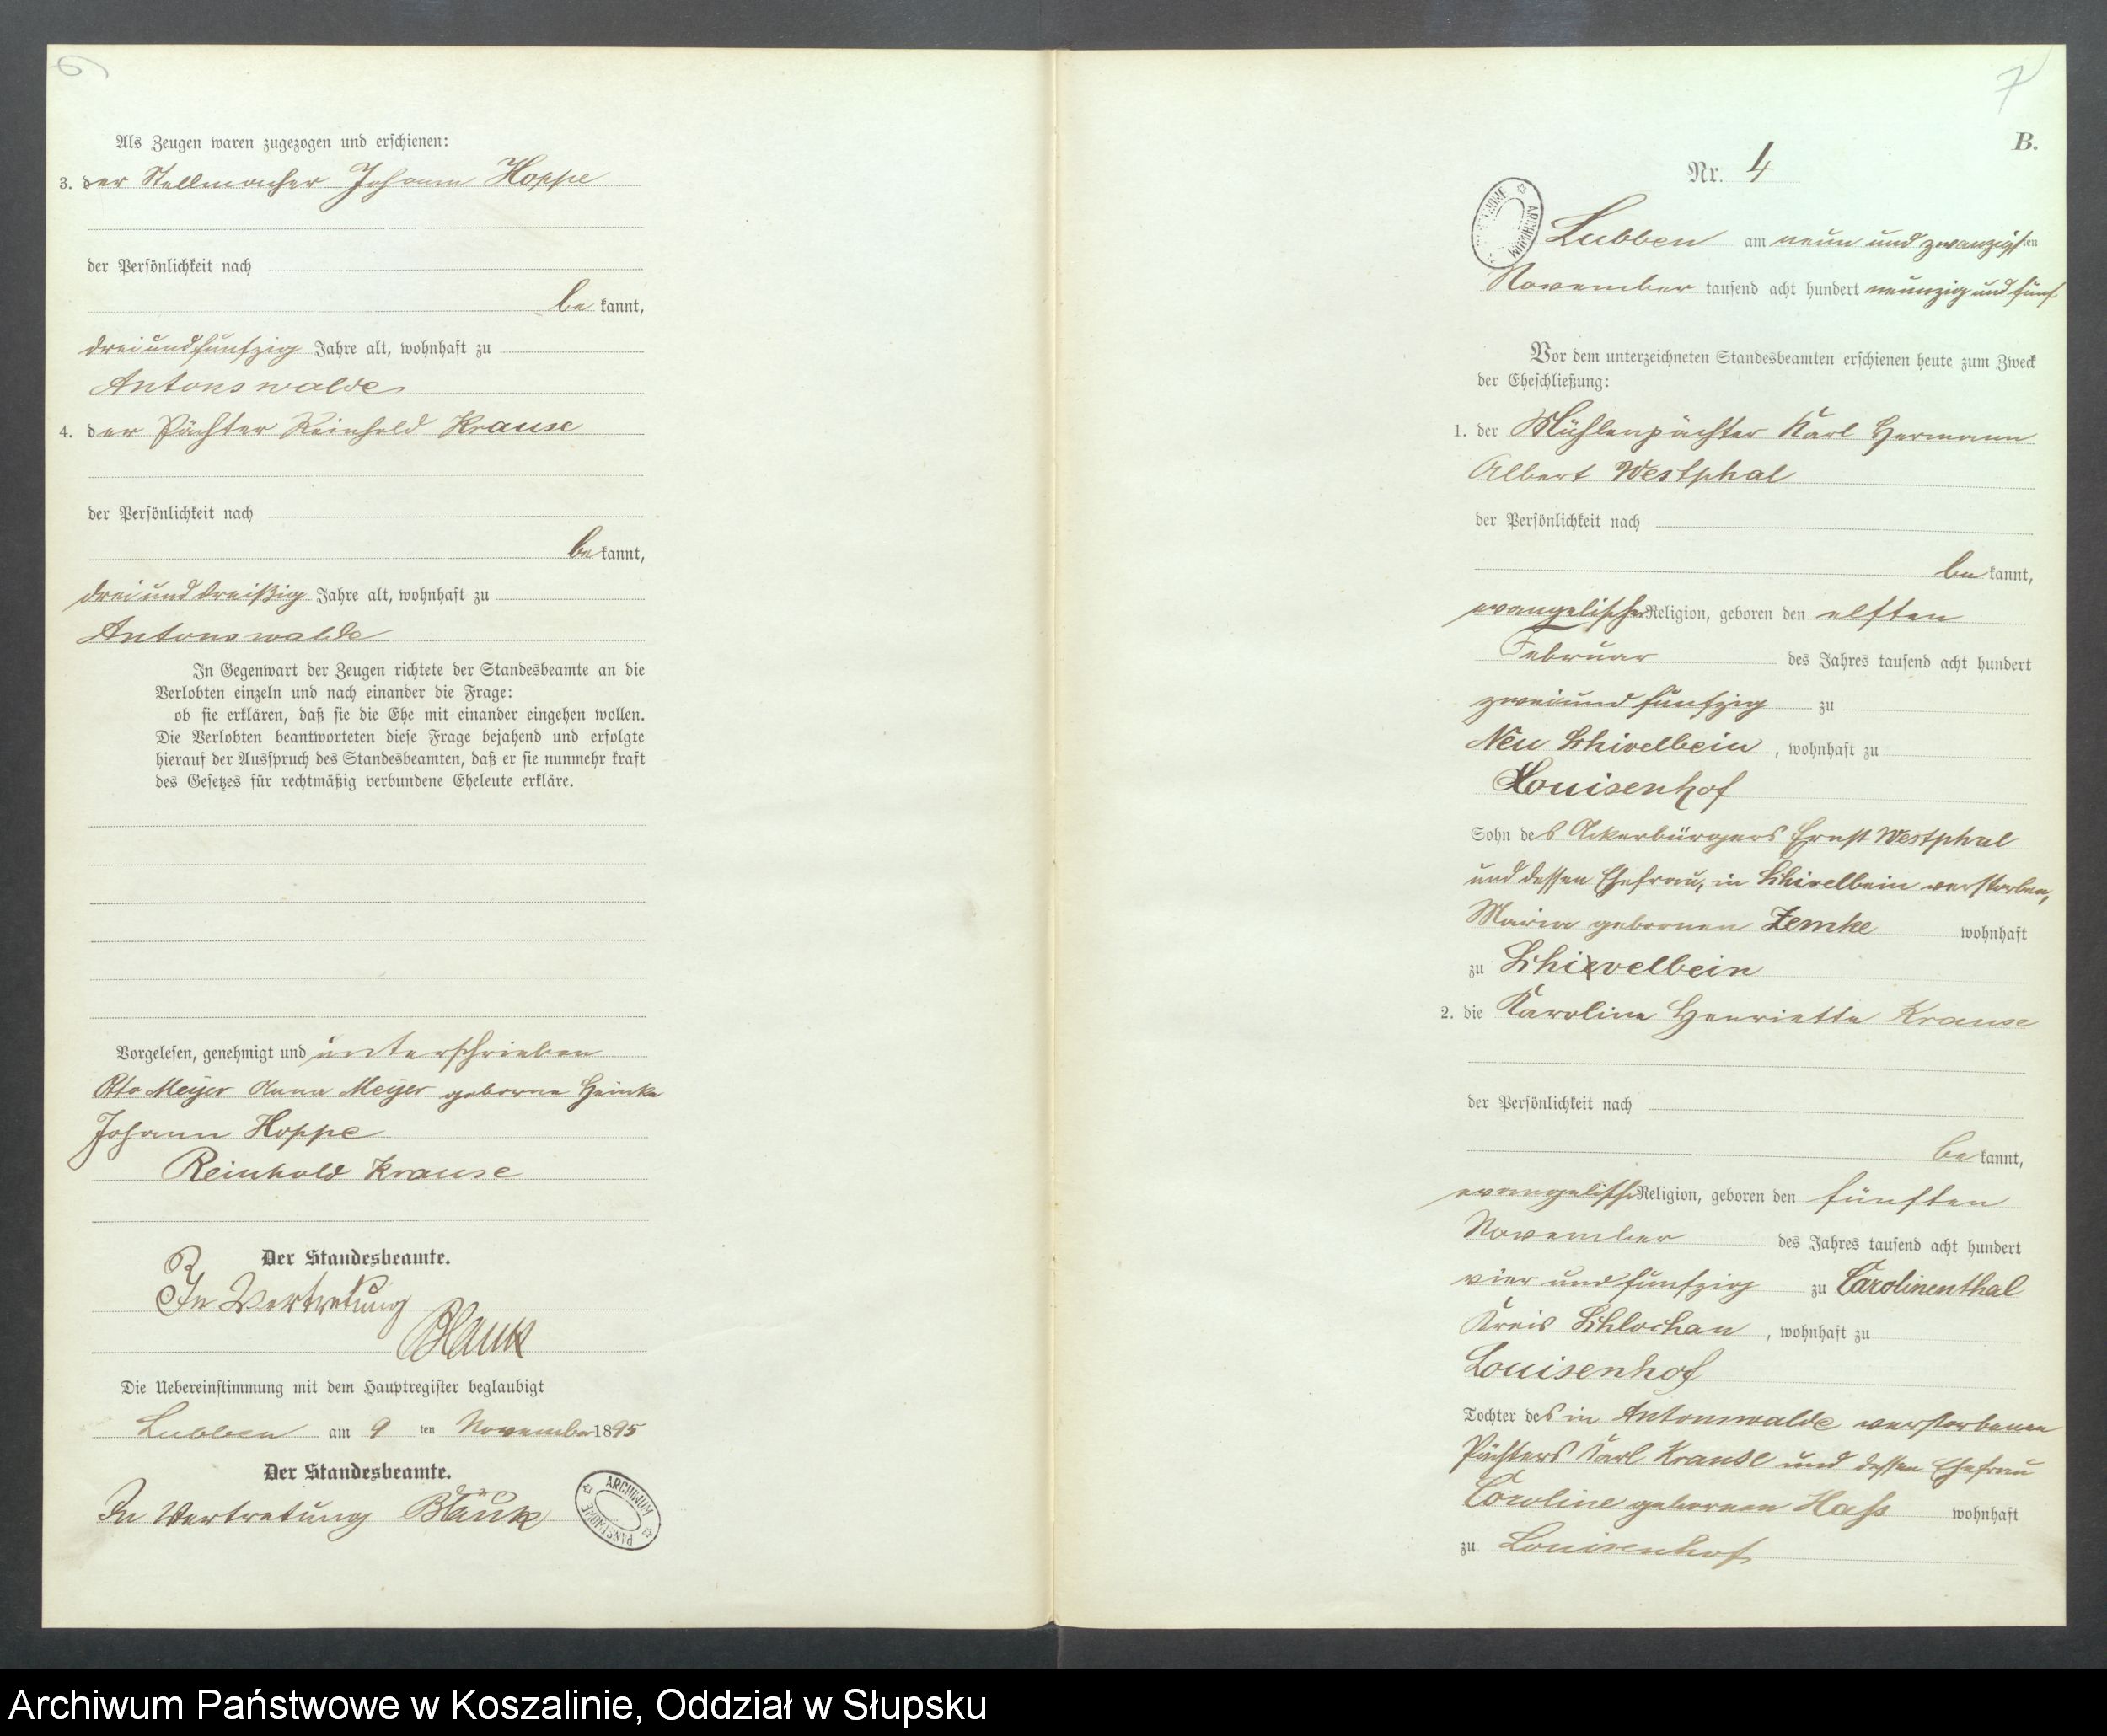 6
Als Zeugen waren zugezogen und erschienen:
3. der Stellmacher Johann Hoppe
der Persönlichkeit nach
be kannt,
dreiundfünfzig Jahre alt, wohnhaft zu
Antonswalde
4. der Pächter Reinhold Krause
der Persönlichkeit nach
be kannt,
dreiunddreißig Jahre alt, wohnhaft zu
Antonswalde
In Gegenwart der Zeugen richtete der Standesbeamte an die
Verlobten einzeln und nach einander die Frage:
ob sie erklären, daß sie die Ehe mit einander eingehen wollen.
Die Verlobten beantworteten diese Frage bejahend und erfolgte
hierauf der Ausspruch des Standesbeamten, daß er sie nunmehr kraft
des Gesetzes für rechtmäßig verbundene Eheleute erkläre.
Vorgelesen, genehmigt und unterschrieben
Otto Meyer Anna Meyer geborne Heinke
Johann Hoppe
Reinhold Krause
Der Standesbeamte.
In Vertretung
Blauk
Die Uebereinstimmung mit dem Hauptregister beglaubigt
Lubben am 9 ten November 1895
Der Standesbeamte.
In Vertretung Blauk
ARCHIWUM PAŃSTWOWE
7
B.
Nr. 4
ARCHIWUM
Lubben am neun und zwanzigsten
November tausend acht hundert neunzig und fünf
Vor dem unterzeichneten Standesbeamten erschienen heute zum Zweck
der Eheschließung:
1. der Mühlenpächter Karl Hermann
Albert Westphal
der Persönlichkeit nach
be kannt,
evangelischer Religion, geboren den elften
Februar des Jahres tausend acht hundert
zweiundfünfzig zu
Neu Schivelbein, wohnhaft zu
Louisenhof
Sohn des Ackerbürgers Ernst Westphal
und dessen Ehefrau, in Schivelbein verstorben,
Maria gebornen Zemke wohnhaft
zu Schievelbein
2. die Karoline Henriette Krause
der Persönlichkeit nach
be kannt,
evangelischer Religion, geboren den fünften
November des Jahres tausend acht hundert
vier und fünfzig zu Carolinenthal
Kreis Schlochau, wohnhaft zu
Louisenhof
Tochter des in Antonswalde verstorbenen
Pächters Karl Krause und dessen Ehefrau
Caroline gebornen Hass wohnhaft
zu Louisenhof
Archiwum Państwowe w Koszalinie, Oddział w Słupsku